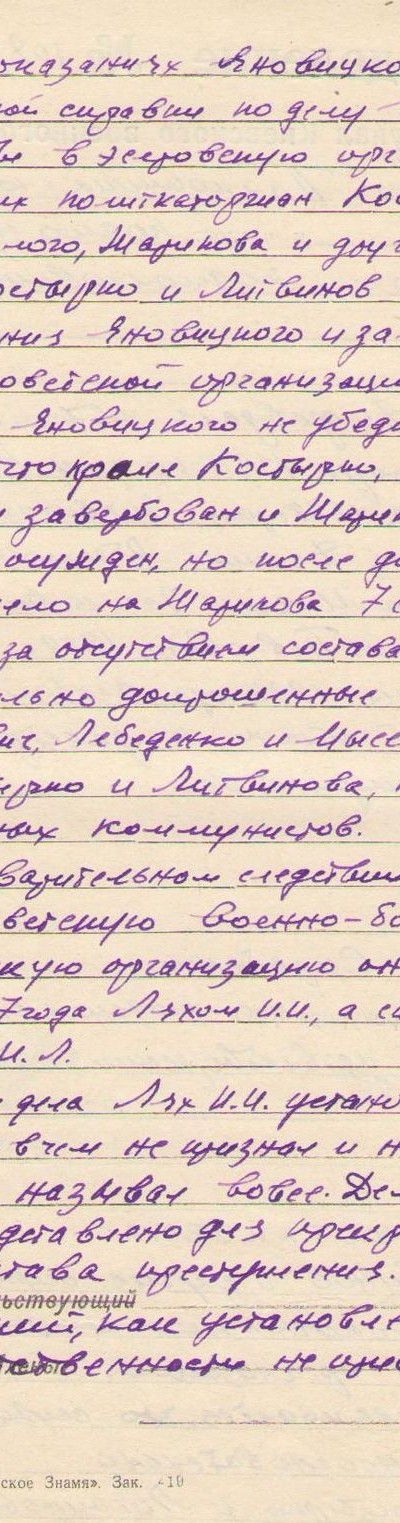 оказаниях Яновицко
ой справки по делу
в эсеровскую орг
их политкаторжан Кос
лого, Шарикова и друг
остырко и Литвинов
ния Яновицкого и за
оветской организаци
Яновицкого не убеди
что кроме Костырко,
завербован и Шарик
осужден, но после до
дело на Шарикова 7 с
за отсутствием состава
льно допрошенные
вич, Лебеденко и Мысе
ырко и Литвинова,
ных коммунистов.
варительном следствии
ветскую военно-бо
скую организацию он
7 года Ляхом И.И., а с
И. Л.
дела Лях И.И. устано
в чем не признал и н
называл вовсе. Дел
дставлено для прекр
става преступления.
льствующий
ший, как установле
ственности не прив
ское Знамя». Зак. 419